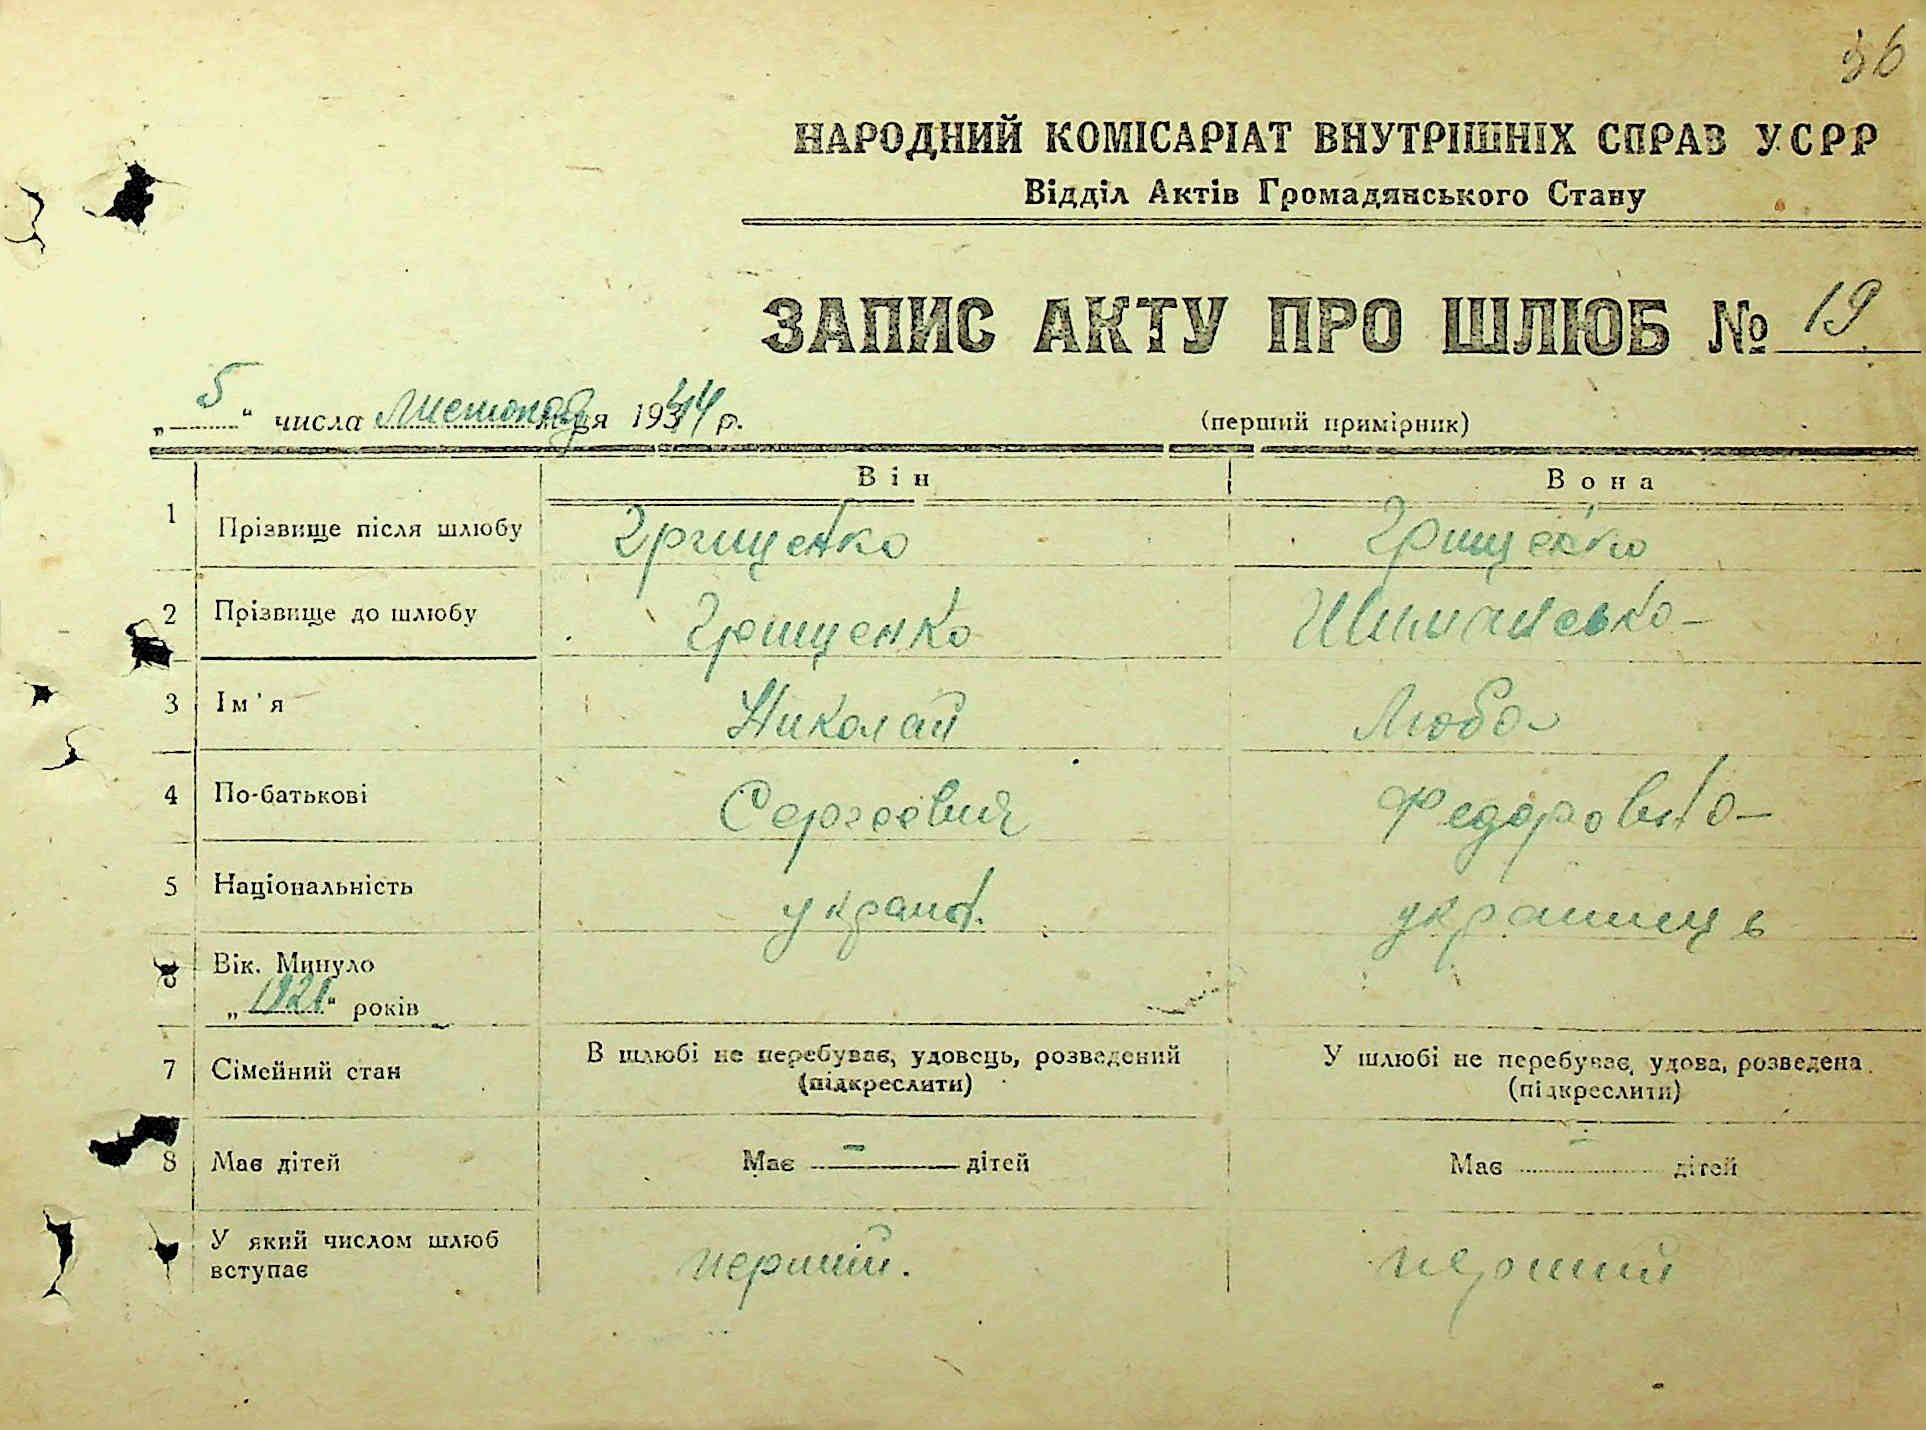 36
НАРОДНИЙ КОМІСАРІАТ ВНУТРІШНІХ СПРАВ УСРР
Відділ Актів Громадянського Стану
ЗАПИС АКТУ ПРО ШЛЮБ № 19
„ 5 “ числа листопад місяця 1944 р.
(перший примірник)
Він Вона
1 Прізвище після шлюбу Грищенко Грищенко
2 Прізвище до шлюбу Грищенко
3 Ім'я Николай Люба
4 По-батькові Сергеевич Федоровна
5 Національність україн. українець
6 Вік. Минуло
„ “ років
7 Сімейний стан В шлюбі не перебуває, удовець, розведений (підкреслити) У шлюбі не перебуває, удова, розведена (підкреслити)
8 Має дітей Має – дітей Має – дітей
У який числом шлюб вступає перший. перший